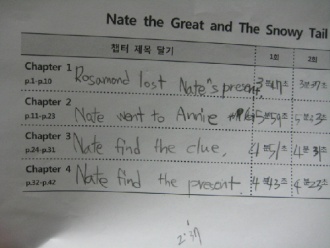 Nate the Great and The Snowy Tail
챕터 제목 달기 1회 2회
Chapter 1 Rosamond lost Nate"s present 3분47초 3분37초
p.1-p.10
Chapter 2 Nate went to Annie 5분59초
p.11-p.23
Chapter 3 Nate find the clue. 4분51초 4분31초
p.24-p.31
Chapter 4 Nate find the present. 4분43초 4분23초
p.32-p.42